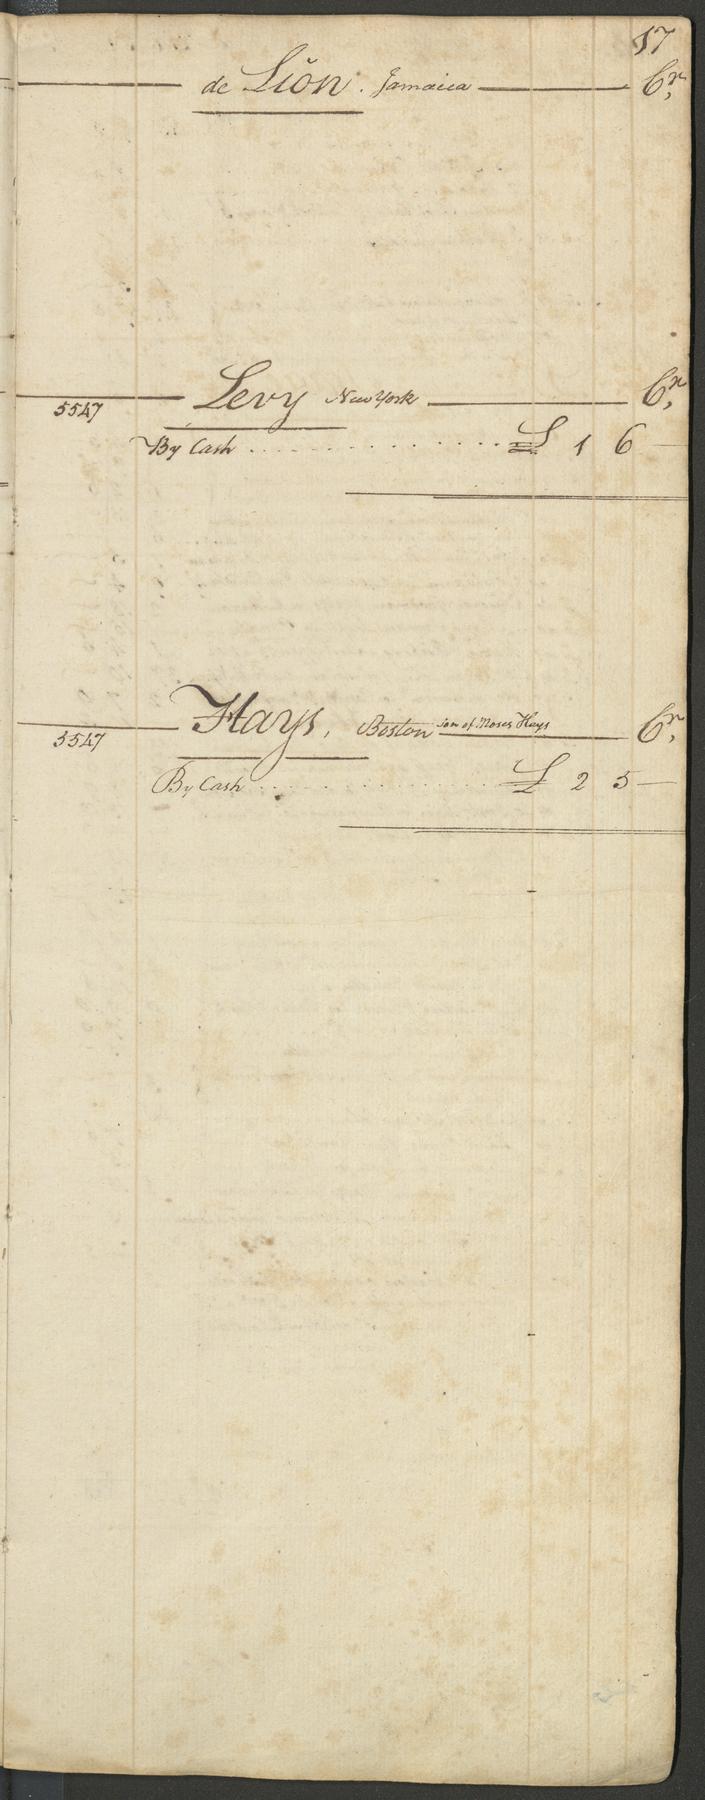 17
de Liŏn. Jamaica Cr,
Levy New York Cr,
5547
By Cash £ 1 6 —
Hays, Boston son of Moses Hays Cr,
5547
By Cash £ 2 5 —